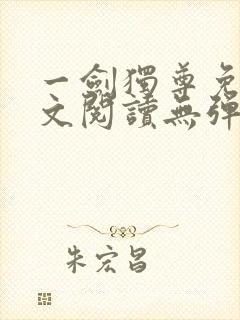 一劍獨尊免
文閱讀無彈
朱宏昌